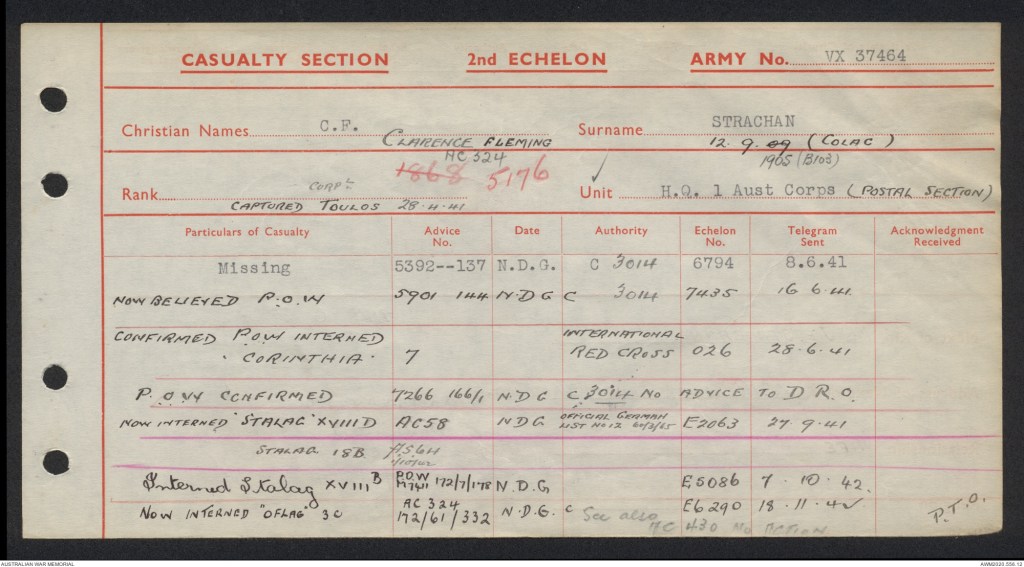 CASUALTY SECTION 2nd ECHELON ARMY No. VX 37464
Christian Names C.F. Surname STRACHAN
CLARENCE FLEMING 12. 9. 09 (COLAC)
AC 324 1905 (B103)
1868 5176
Rank CORPL Unit H.Q. 1 Aust Corps (POSTAL SECTION)
CAPTURED TOULOS 28.4.41
Particulars of Casualty Advice No. Date Authority Echelon No. Telegram Sent Acknowledgment Received
Missing 5392--137 N.D.G. C 3014 6794 8.6.41
NOW BELIEVED P.O.W 5901 144 N.D.G C 3014 7435 16 6.41.
CONFIRMED P.O.W INTERNED INTERNATIONAL
"CORINTHIA" 7 RED CROSS 026 28.6.41
P.O.W CONFIRMED 7266 166/1 N.D.G C 3014 NO ADVICE TO D.R.O.
NOW INTERNED "STALAG" XVIII D AC58 NDG OFFICIAL GERMAN LIST No 12 E2063 27.9.41
STALAG 18B
Interned Stalag XVIII B P.O.W 172/7/178 N.D.G E5086 7. 10. 42.
NOW INTERNED "OFLAG" 3C AC 324 172/61/332 N.D.G. C E6290 18.11.42
See also AC 430 No ACTION
P.T.O.
AUSTRALIAN WAR MEMORIAL AWM2020.556.12